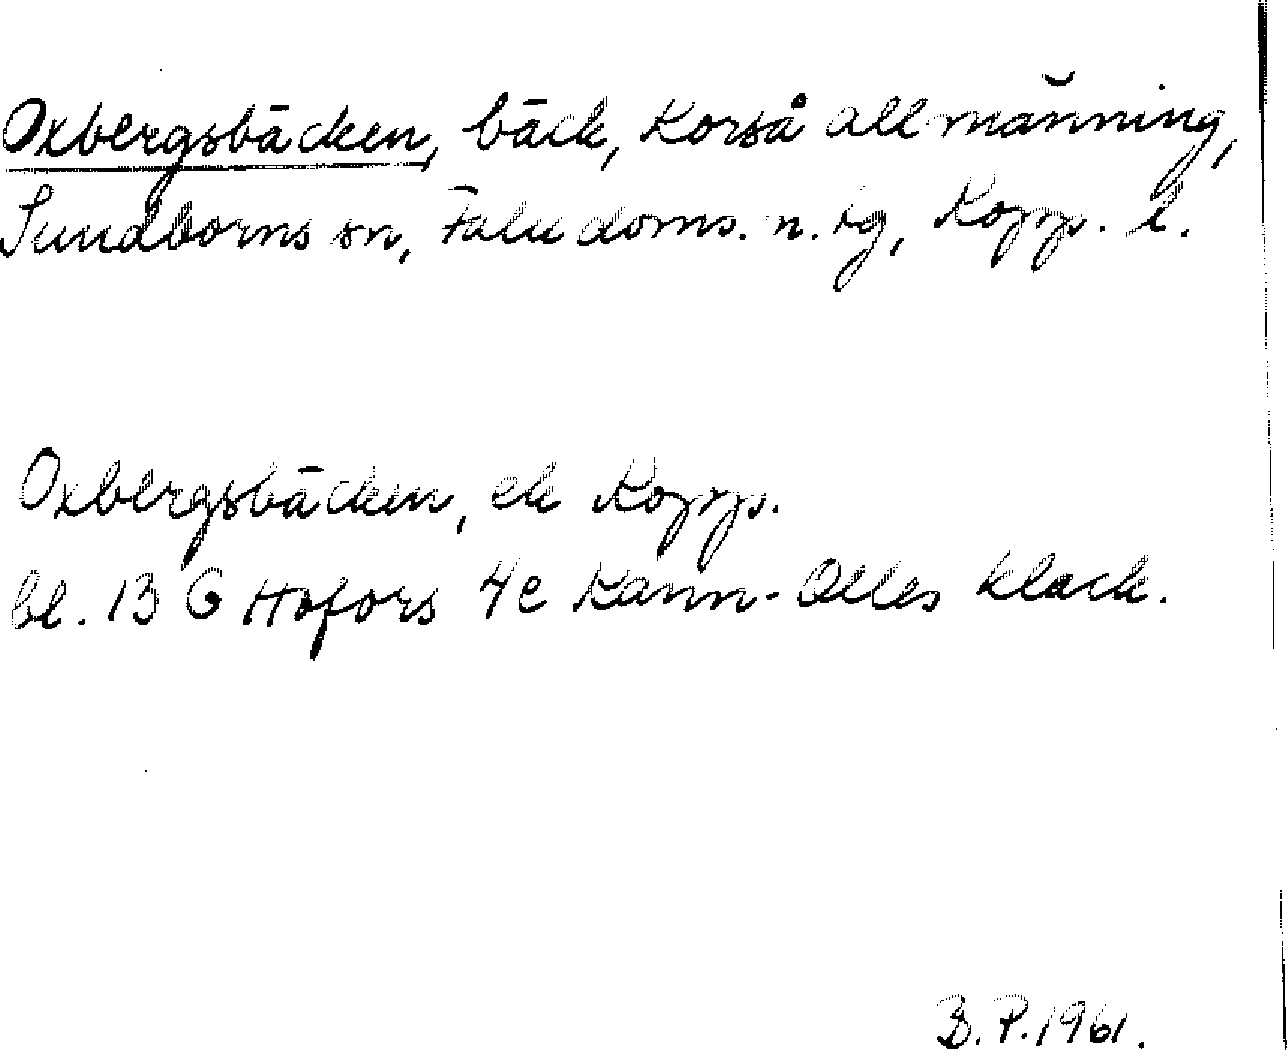 Oxbergsbäcken, bäck, Korså allmänning,
Sundborns sn, Falu doms. n. tg, Kopp. l.
Oxbergsbäcken, ek Kopp.
bl. 13 G Hofors 4e Kann-Olles klack.
B. P. 1961.